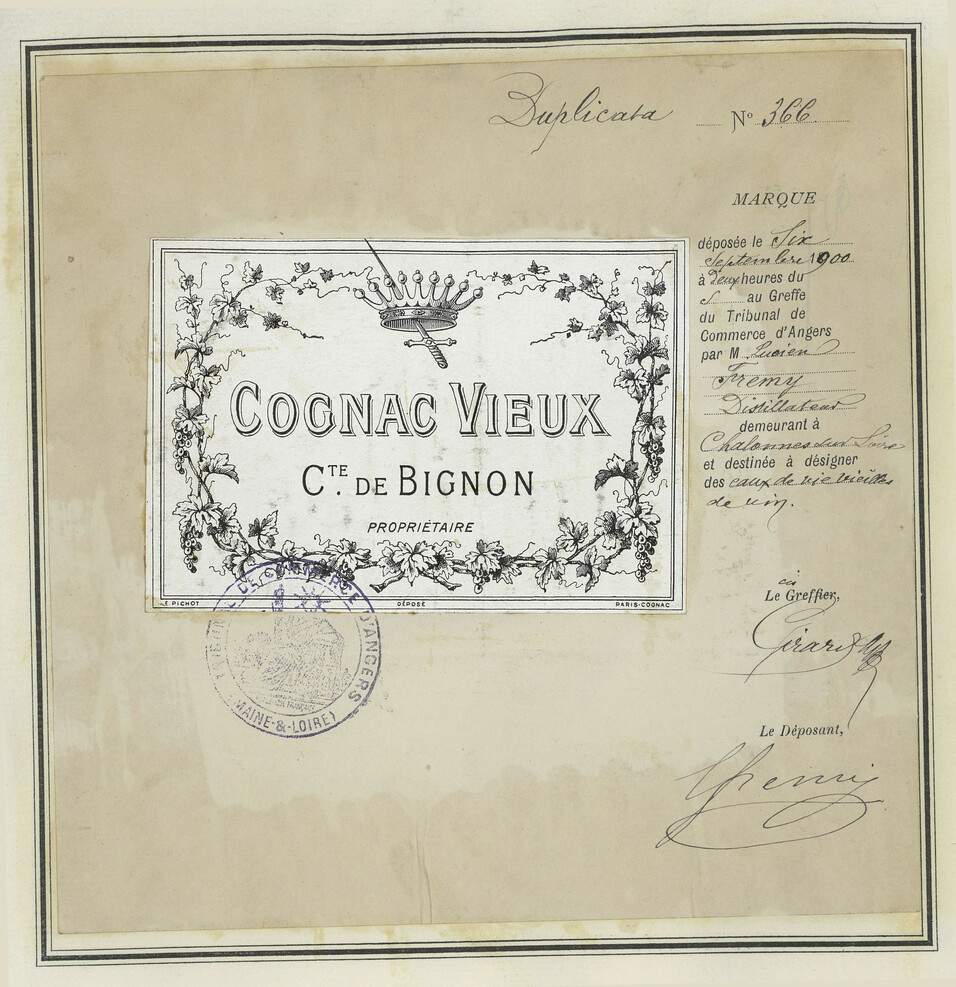 Duplicata Nº 366.
MARQUE
déposée le Six
Septembre 1900
à deux heures du
s au Greffe
du Tribunal de
Commerce d'Angers
par M. Lucien
Fremy
Distillateur
demeurant à
Chalonnes sur Loire
et destinée à désigner
des eaux de vie vieilles
de vin.
COGNAC VIEUX
CTE. DE BIGNON
PROPRIÉTAIRE
E. PICHOT DÉPOSÉ PARIS-COGNAC
TRIBUNAL DE COMMERCE D'ANGERS
(MAINE-&-LOIRE)
Le Greffier,
Le Déposant,
LFremy